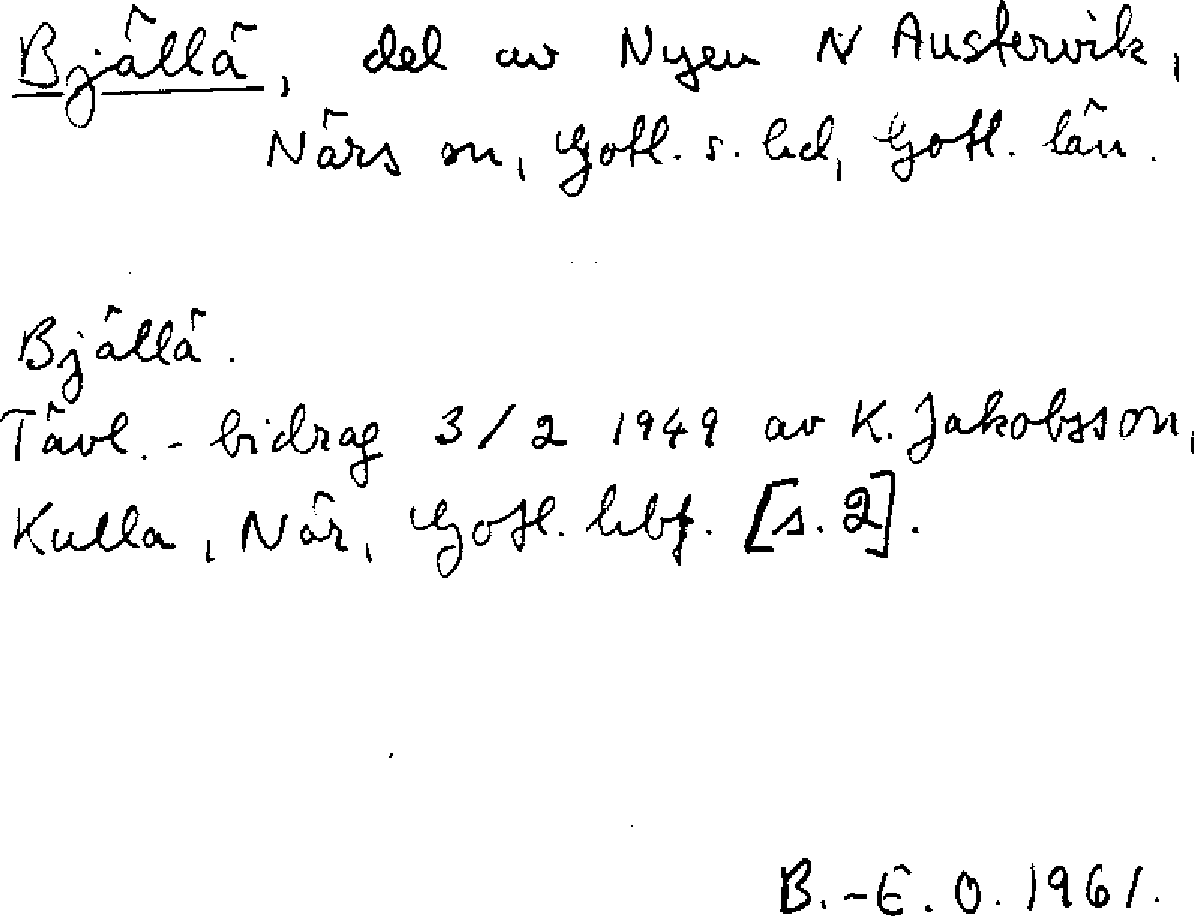 Bjällä, del av Nyen N Austervik,
Närs sn, Gotl. s. hd, Gotl. län.
Bjällä.
Tävl.-bidrag 3/2 1949 av K. Jakobsson,
Kulla, När, Gotl. hbf. [s. 2].
B.-E. O. 1961.